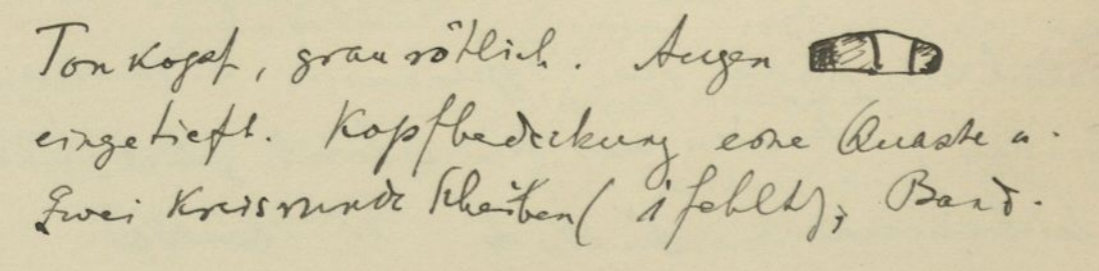 Tonkopf, grau rötlich. Augen
eingetieft. Kopfbedeckung eine Quaste u.
zwei kreisrunde Scheiben (1 fehlt), Band.